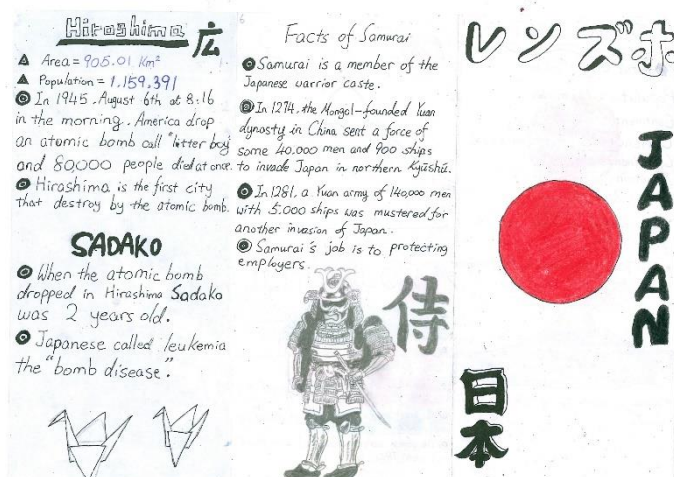 Hiroshima 広
Area = 905.01 Km²
Population = 1.159.391
In 1945. August 6th at 8:16
in the morning. America drop
an atomic bomb call "litter boy"
and 80,000 people died at once.
Hiroshima is the first city
that destroy by the atomic bomb.
SADAKO
When the atomic bomb
dropped in Hiroshima Sadako
was 2 years old.
Japanese called leukemia
the "bomb disease".
Facts of Samurai
Samurai is a member of the
Japanese warrior caste.
In 1274, the Mongol-founded Yuan
dynasty in China sent a force of
some 40.000 men and 900 ships
to invade Japan in northern Kyūshū.
In 1281, a Yuan army of 140,000 men
with 5.000 ships was mustered for
another invasion of Japan.
Samurai's job is to protecting
employers.
侍
レンズホ
JAPAN
日本